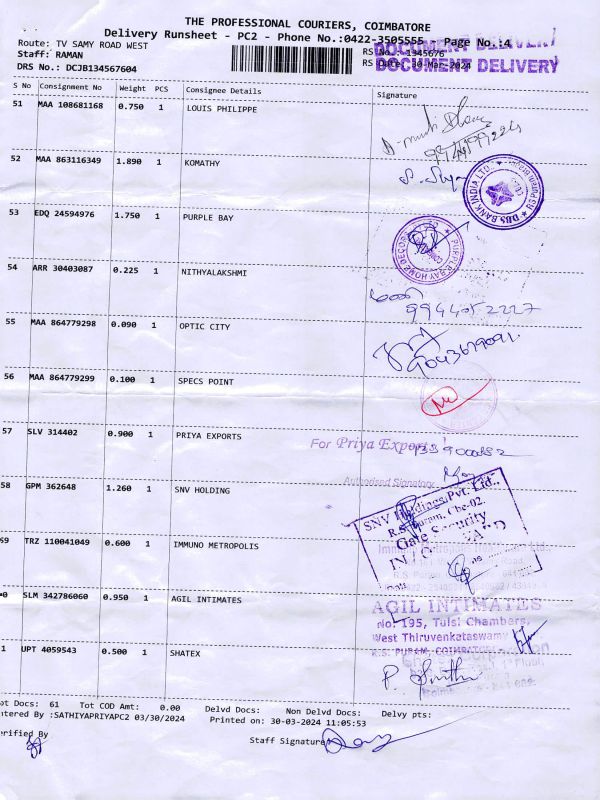 THE PROFESSIONAL COURIERS, COIMBATORE
Delivery Runsheet - PC2 - Phone No.:0422-3505555 - Page No.:4
DOCUMENT DELIVERY
Route: TV SAMY ROAD WEST
RS No.: 1345676
Staff: RAMAN
RS Date: 30-Mar-2024
DOCUMENT DELIVERY
DRS No.: DCJB134567604
S No Consignment No Weight PCS Consignee Details Signature
51 MAA 108681168 0.750 1 LOUIS PHILIPPE
52 MAA 863116349 1.890 1 KOMATHY
DBS BANK INDIA LTD
53 EDQ 24594976 1.750 1 PURPLE BAY
PURPLE BAY HOME DECOR
54 ARR 30403087 0.225 1 NITHYALAKSHMI
9944052227
55 MAA 864779298 0.090 1 OPTIC CITY
9043679091
56 MAA 864779299 0.100 1 SPECS POINT
57 SLV 314402 0.900 1 PRIYA EXPORTS
For Priya Exports
Authorised Signatory
58 GPM 362648 1.260 1 SNV HOLDING
SNV Holdings Pvt. Ltd.,
R.S. Puram, Cbe-02.
Gate Security
69 TRZ 110041049 0.600 1 IMMUNO METROPOLIS
0 SLM 342786060 0.950 1 AGIL INTIMATES
AGIL INTIMATES
No: 195, Tulsi Chambers,
West Thiruvenkataswamy
R.S. PURAM, COIMBATORE
1 UPT 4059543 0.500 1 SHATEX
ot Docs: 61 Tot COD Amt: 0.00 Delvd Docs: Non Delvd Docs: Delvy pts:
ntered By :SATHIYAPRIYAPC2 03/30/2024 Printed on: 30-03-2024 11:05:53
erified By
Staff Signature